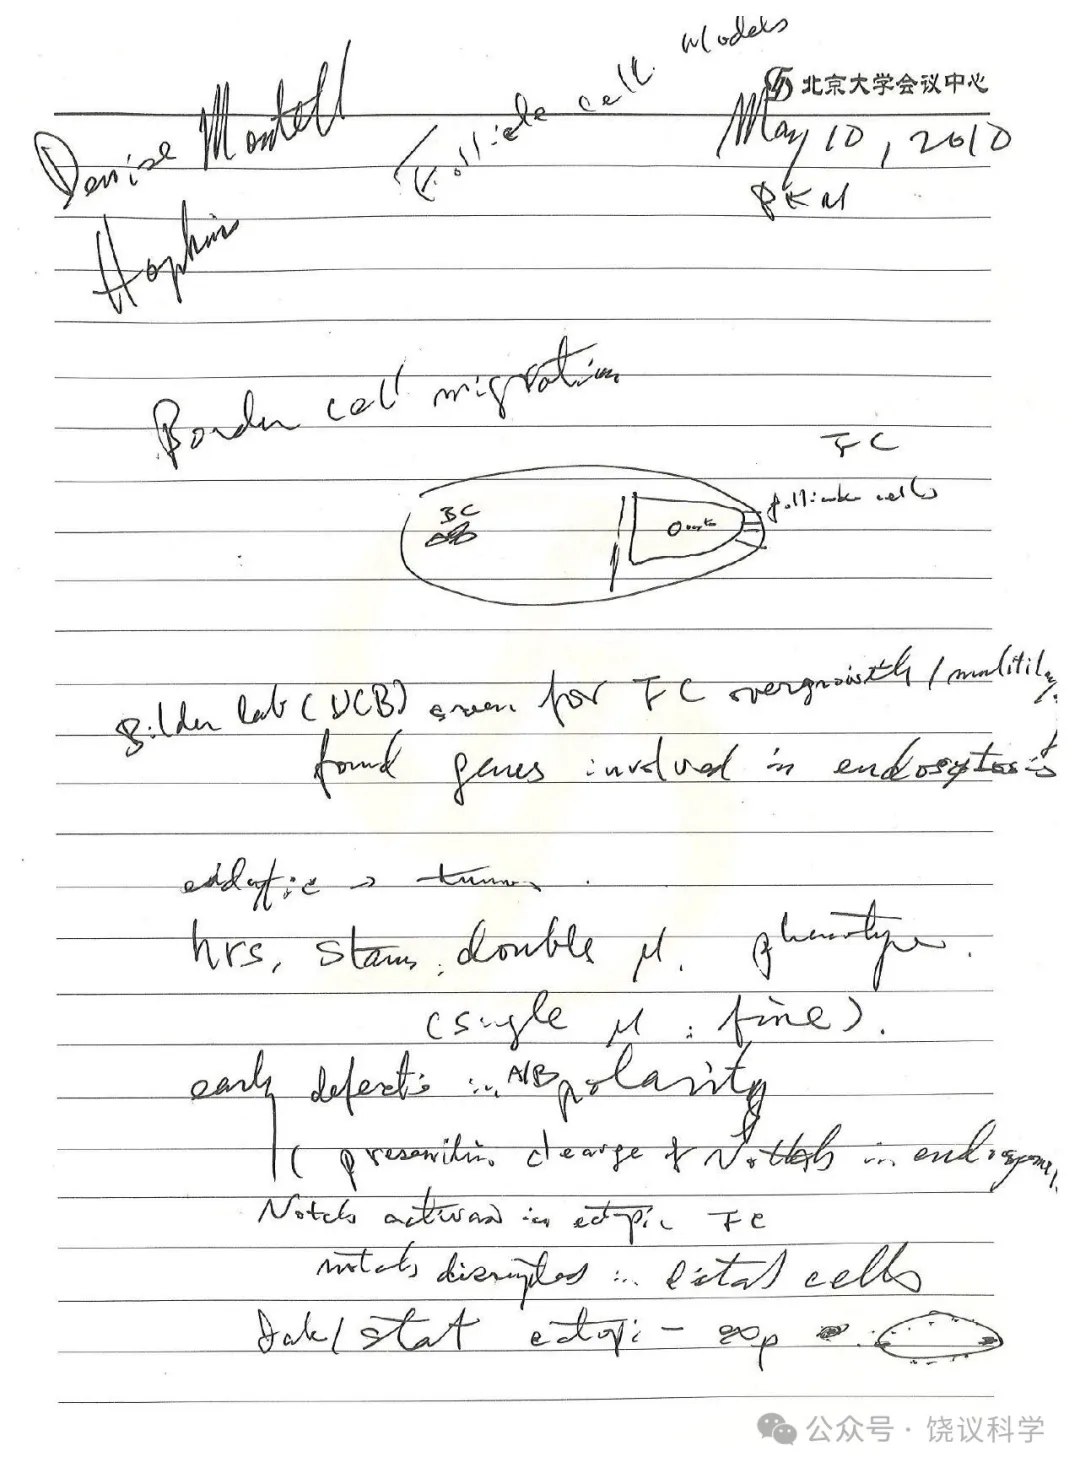 Follicle cell Models
北京大学会议中心
Denise Montell
May 10, 2010
PKU
Hopkins
Border cell migration
FC
BC
follicle cells
Bilder lab (UCB) screen for FC overgrowth / multilay
found genes involved in endocytosis
→ tumor
hrs, stam, double μ. phenotype.
(single μ : fine).
early defects in A/B polarity
( presenilin cleavage of Notch in endosome)
Notch activated in ectopic FC
notch disrupted in cells
Jak/stat ectopic exp
公众号 · 饶议科学